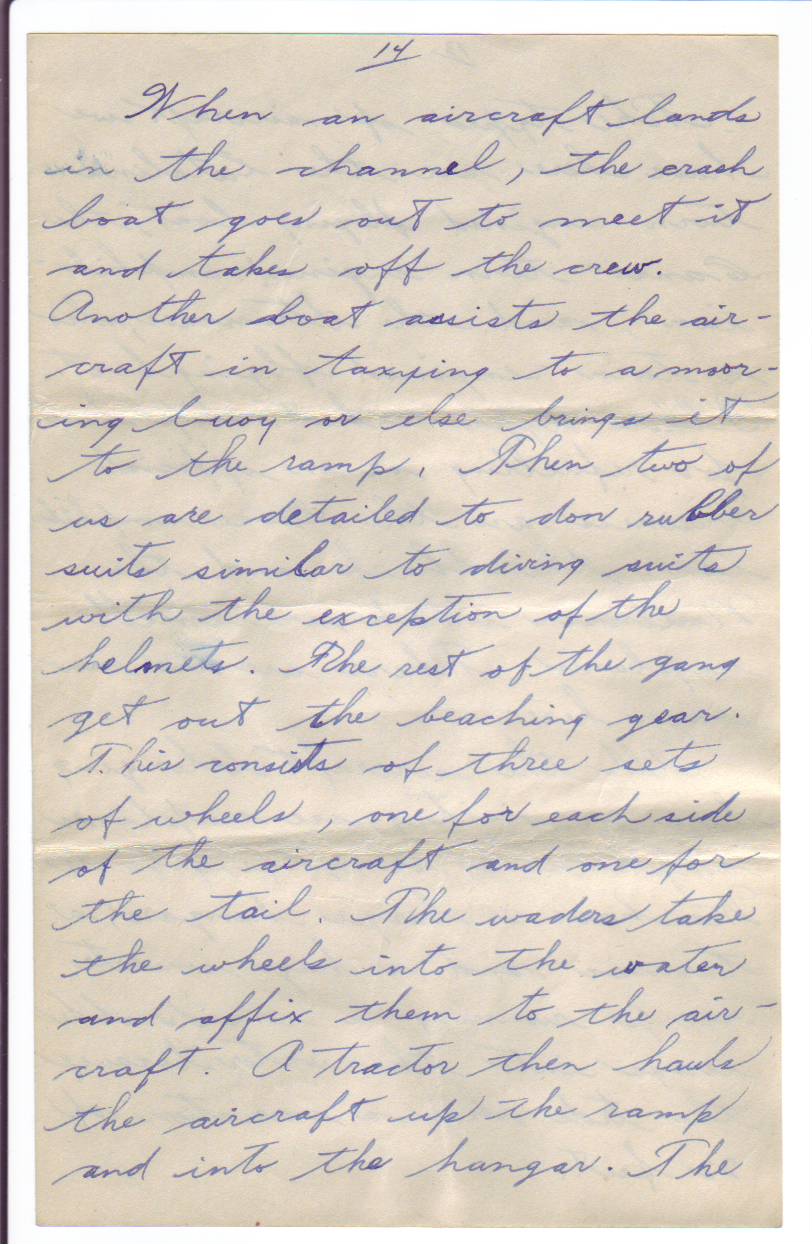 14
When an aircraft lands
in the channel, the crash
boat goes out to meet it
and takes off the crew.
Another boat assists the air-
craft in taxying to a moor-
ing buoy or else brings it
to the ramp. Then two of
us are detailed to don rubber
suits similar to diving suits
with the exception of the
helmets. The rest of the gang
get out the beaching gear.
This consists of three sets
of wheels, one for each side
of the aircraft and one for
the tail. The waders take
the wheels into the water
and affix them to the air-
craft. A tractor then hauls
the aircraft up the ramp
and into the hangar. The